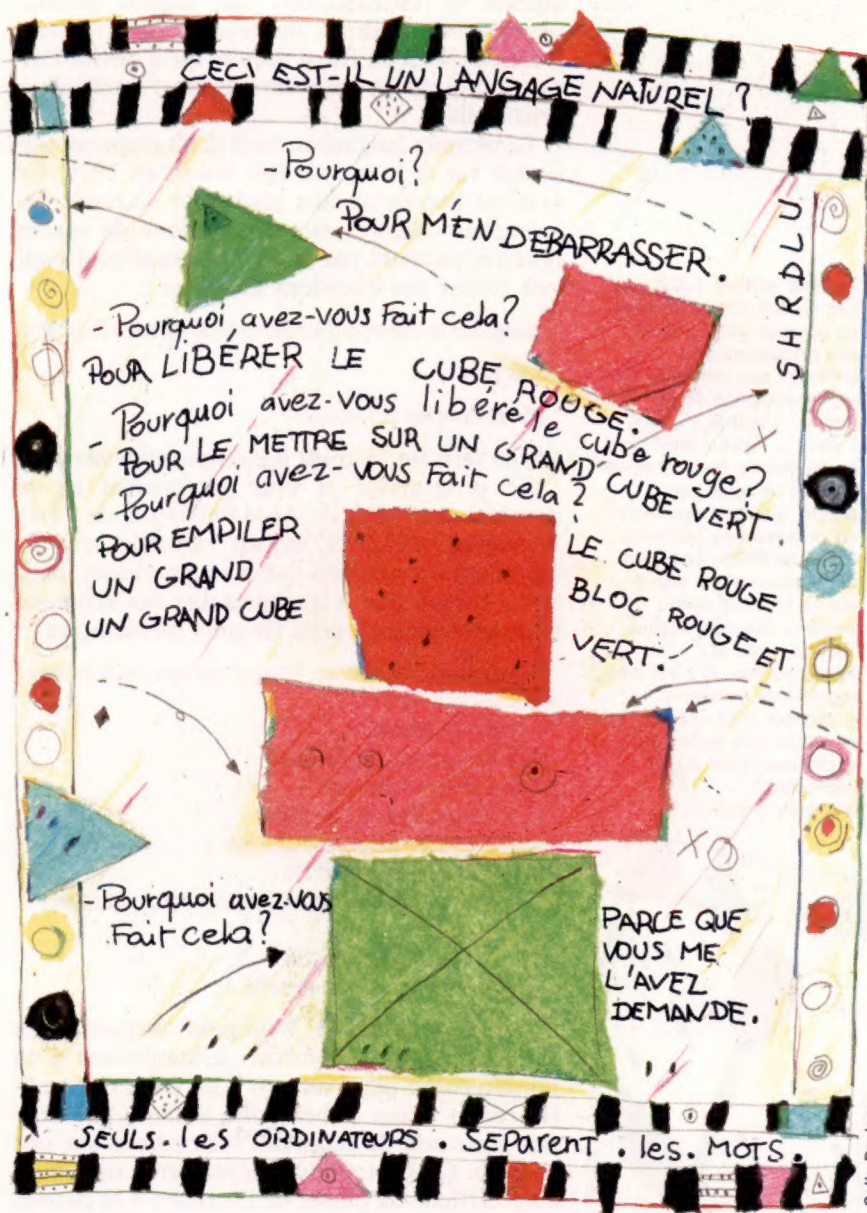 CECI EST-IL UN LANGAGE NATUREL ?
-Pourquoi?
POUR M'EN DEBARRASSER.
SHRDLU
-Pourquoi, avez-vous Fait cela?
POUR LIBÉRER LE CUBE ROUGE.
-Pourquoi avez-vous libéré le cube rouge?
POUR LE METTRE SUR UN GRAND CUBE VERT.
-Pourquoi avez-vous Fait cela?
POUR EMPILER LE CUBE ROUGE
UN GRAND BLOC ROUGE ET
UN GRAND CUBE VERT.
-Pourquoi avez-vous
Fait cela?
PARCE QUE
VOUS ME
L'AVEZ
DEMANDE.
SEULS.les ORDINATEURS. SEPARENT.les.MOTS.